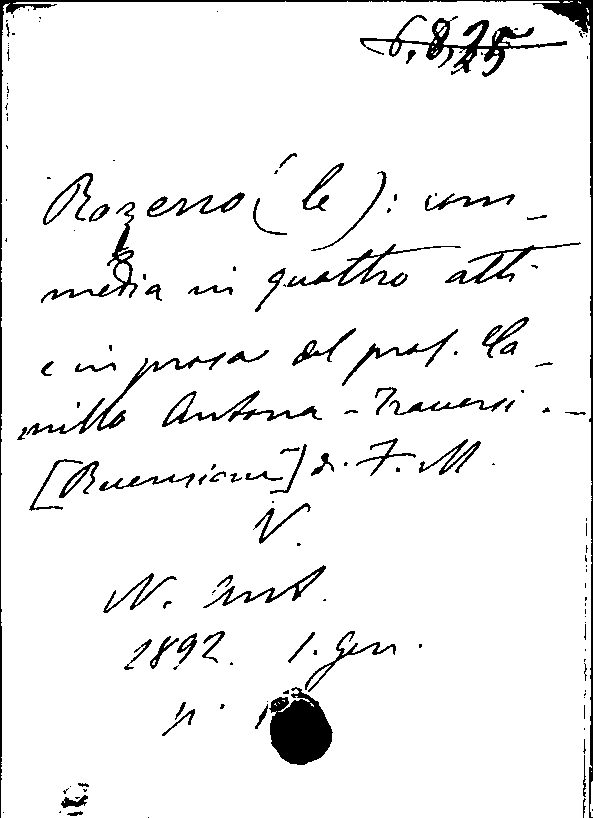 6.8.25
Rozeno (le): com-
media in quattro atti
e in prosa del prof. Ca-
millo Antona-Traversi.-
[Recensione] di F. M.
V.
N. Ant.
1892. 1. Gen.
p.